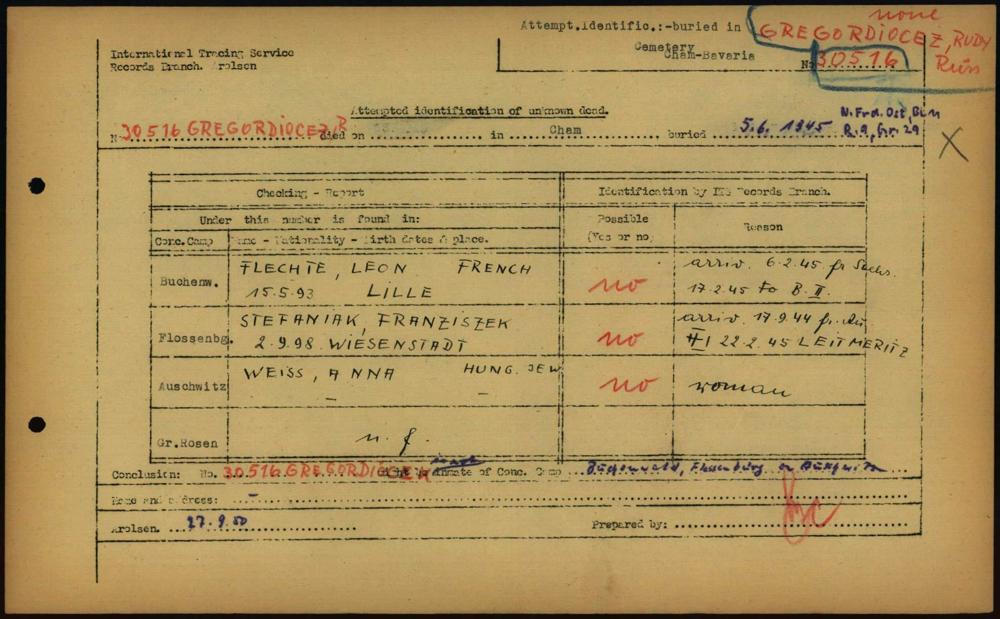 none
Attempt.Identific.:-buried in GREGORDIOCEZ, RUDY
Cemetery
Cham-Bavaria
No 30516
International Tracing Service
Records Branch. Arolsen
Attempted identification of unknown dead.
N. 30516 GREGORDIOCEZ, R died on in Cham buried 5.6. 1945
R.9, Gr. 29
X
Checking - Report Identification by ITS Records Branch.
Under this number is found in: Possible (Yes or no) Reason
Conc.Camp Name - Nationality - Birth dates & place.
Buchenw. FLECHTE, LEON FRENCH no arriv. 6.2.45 fr Sachs.
15.5.93 LILLE 17.2.45 to B.II.
Flossenbg. STEFANIAK, FRANZISZEK no arriv. 17.9.44 fr. Au
2.9.98 WIESENSTADT 22.2.45 LEITMERITZ
Auschwitz WEISS, ANNA HUNG. JEW no woman
Gr.Rosen n.f.
Conclusion: No. 30516 GREGORDIOCEZ inmate of Conc. Camp Buchenwald, Flossenbürg or Auschwitz
Name and address: -
Arolsen. 27.9.50 Prepared by: